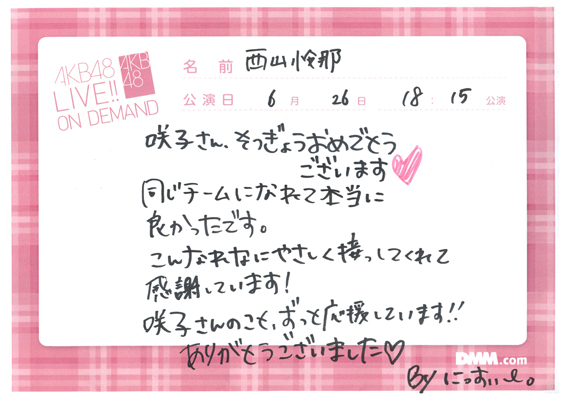 AKB48
LIVE!!
ON DEMAND
AKB
48
名前 西山怜那
公演日 6月 26日 18:15 公演
咲子さん、そつぎょうおめでとう
ございます
同じチームになれて本当に
良かったです。
こんなれなにやさしく接っしてくれて
感謝しています!
咲子さんのこと、ずっと応援しています!!
ありがとうございました♡
DMM.com
By にっすぃ〜。